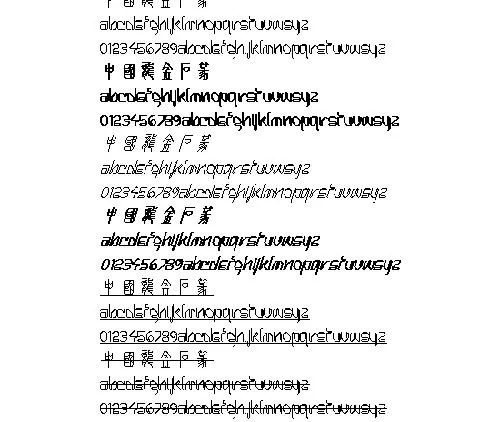 abcdefghijklmnopqrstuvwxyz
0123456789abcdefghijklmnopqrstuvwxyz
中國龍金石篆
abcdefghijklmnopqrstuvwxyz
0123456789abcdefghijklmnopqrstuvwxyz
中國龍金石篆
abcdefghijklmnopqrstuvwxyz
0123456789abcdefghijklmnopqrstuvwxyz
中國龍金石篆
abcdefghijklmnopqrstuvwxyz
0123456789abcdefghijklmnopqrstuvwxyz
中國龍金石篆
abcdefghijklmnopqrstuvwxyz
0123456789abcdefghijklmnopqrstuvwxyz
中國龍金石篆
abcdefghijklmnopqrstuvwxyz
0123456789abcdefghijklmnopqrstuvwxyz